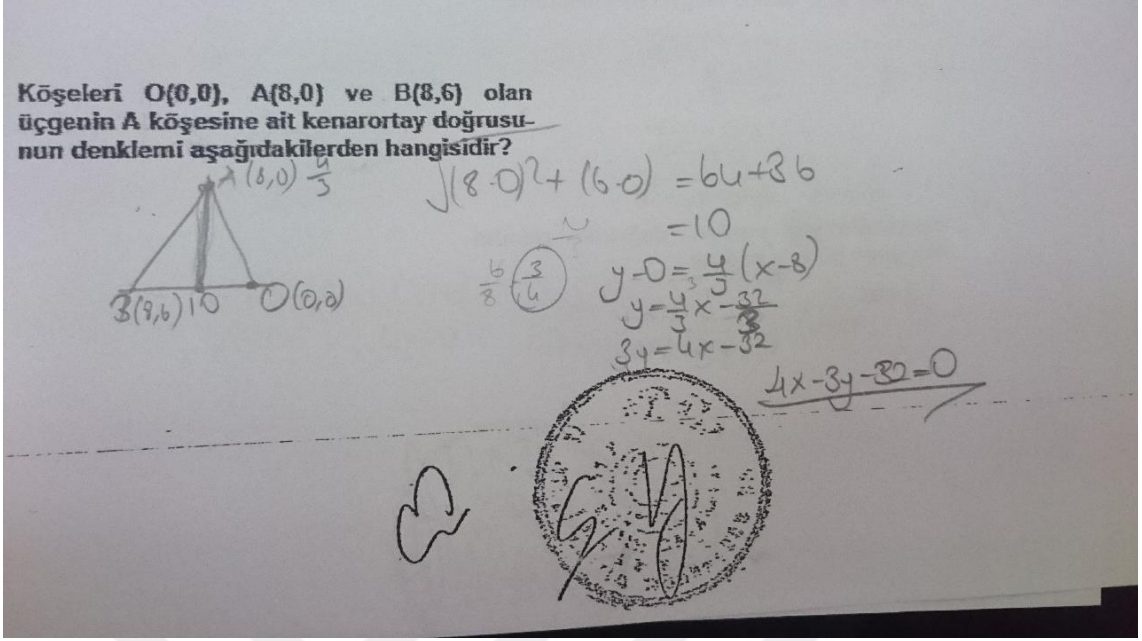 Köşeleri O(0,0), A(8,0) ve B(8,6) olan
üçgenin A köşesine ait kenarortay doğrusu-
nun denklemi aşağıdakilerden hangisidir?
A(8,0) 4/3
B(8,6) 10 O(0,0)
√(8-0)²+(6-0) = 64+36
=10
6/8 3/4
y-0=4/3(x-8)
y=4/3x-32/3
3y=4x-32
4x-3y-32=0